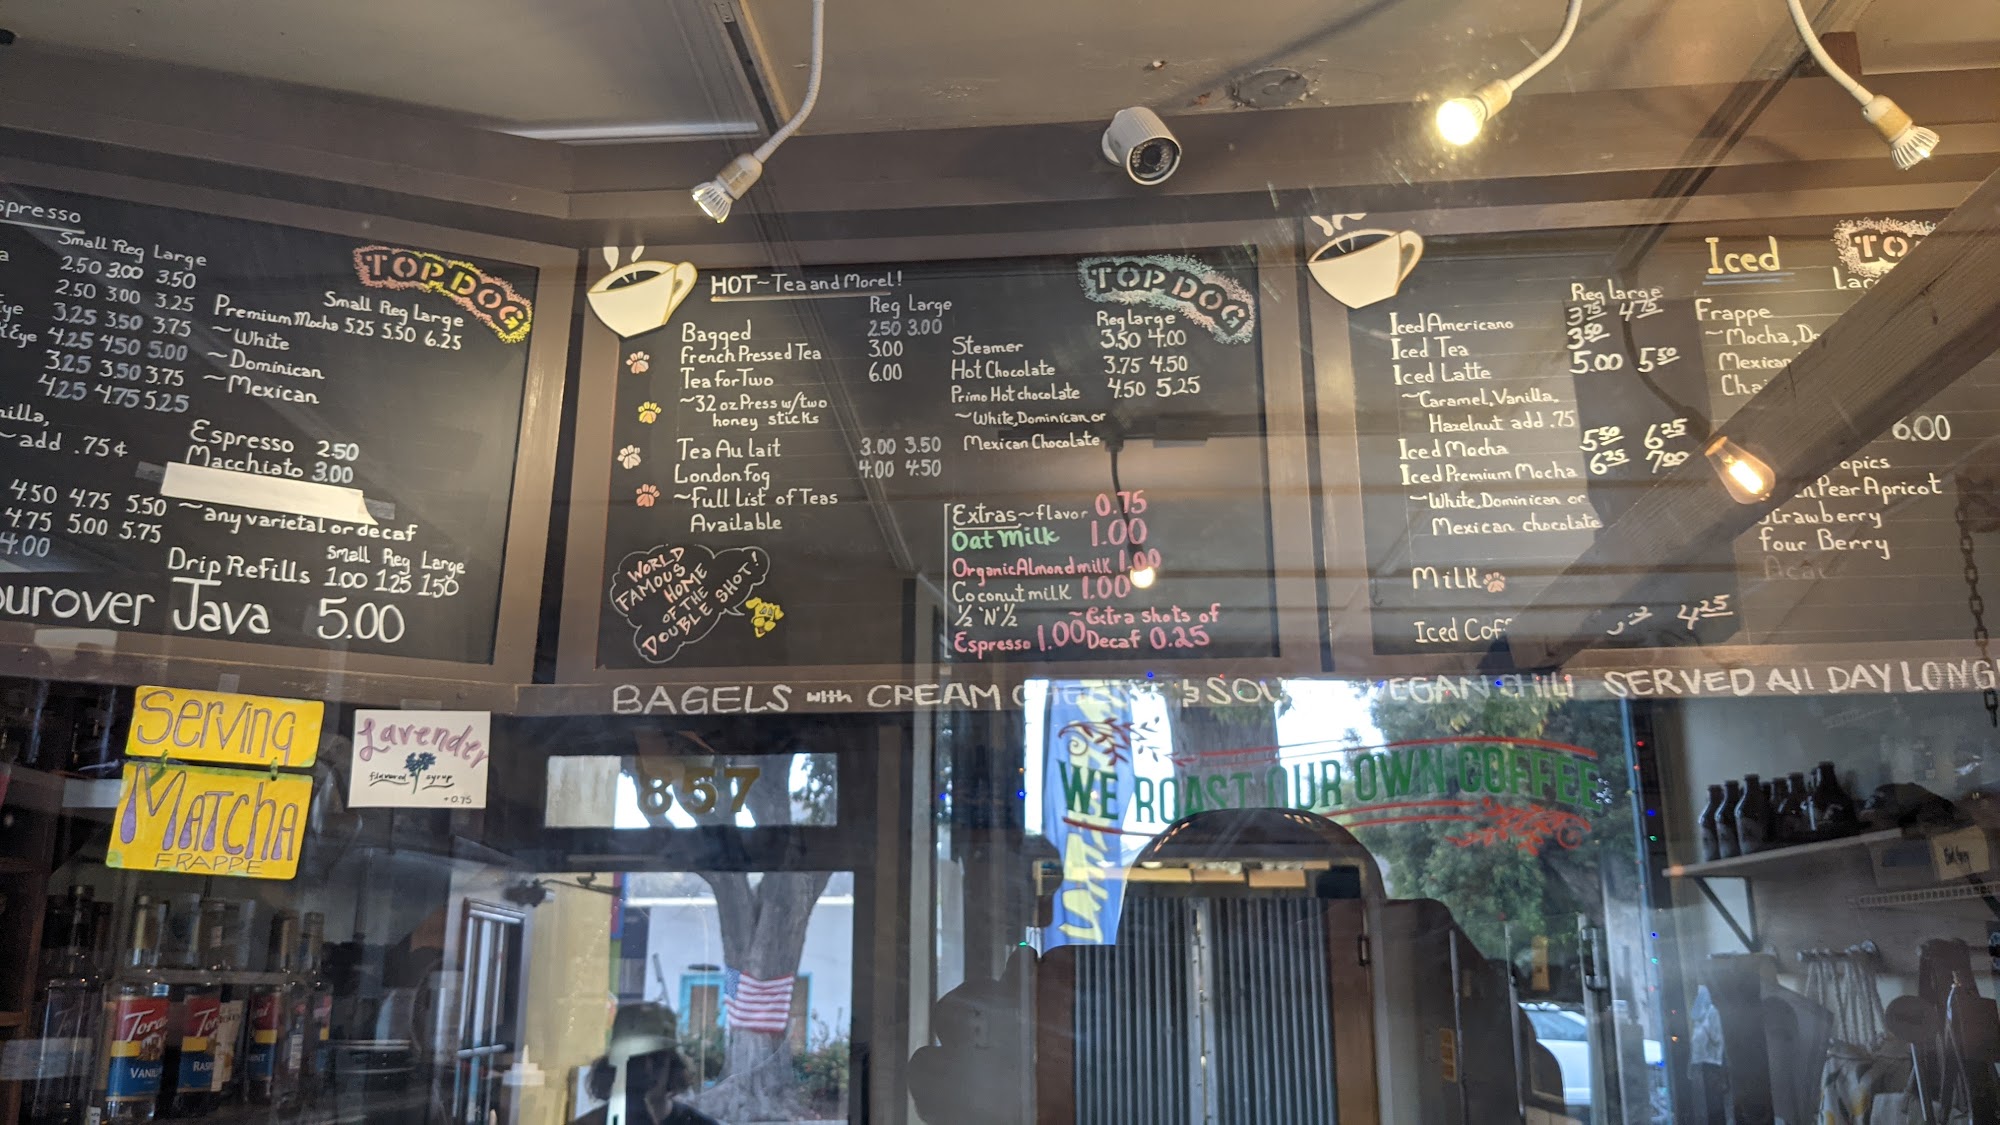 Small Reg Large
2.50 3.00 3.50
2.50 3.00 3.25
3.25 3.50 3.75
Eye 4.25 4.50 5.00
3.25 3.50 3.75
4.25 4.75 5.25
~add .75¢
4.50 4.75 5.50
4.75 5.00 5.75
4.00
TOP DOG
Small Reg Large
Premium Mocha 5.25 5.50 6.25
~White
~Dominican
~Mexican
Espresso 2.50
Macchiato 3.00
~any varietal or decaf
Small Reg Large
Drip Refills 1.00 1.25 1.50
Java 5.00
HOT~Tea and More!
TOP DOG
Reg Large
Bagged 2.50 3.00
French Pressed Tea 3.00
Tea for Two 6.00
~32 oz Press w/two
honey sticks
Tea Au lait 3.00 3.50
London Fog 4.00 4.50
~Full List of Teas
Available
WORLD
FAMOUS
HOME
OF THE
DOUBLE SHOT!
Reg Large
Steamer 3.50 4.00
Hot Chocolate 3.75 4.50
Primo Hot chocolate 4.50 5.25
~White, Dominican or
Mexican Chocolate
Extras~flavor 0.75
Oat Milk 1.00
Organic Almond milk 1.00
Coconut milk 1.00
½ 'N' ½
Espresso 1.00
~Extra shots of
Decaf 0.25
Iced
Reg Large
Iced Americano 3.75 4.75
Iced Tea 3.50
Iced Latte 5.00 5.50
~Caramel, Vanilla,
Hazelnut add .75
Iced Mocha 5.50 6.25
Iced Premium Mocha 6.25 7.00
~White, Dominican or
Mexican chocolate
Milk
Iced 4.25
Frappe
~Mocha,
Mexican
6.00
Pear Apricot
Strawberry
Four Berry
Acai
BAGELS with CREAM SERVED All DAY LONG
Serving
Matcha
FRAPPE
Lavender
flavored syrup
+0.75
857
WE ROAST OUR OWN COFFEE
Torani